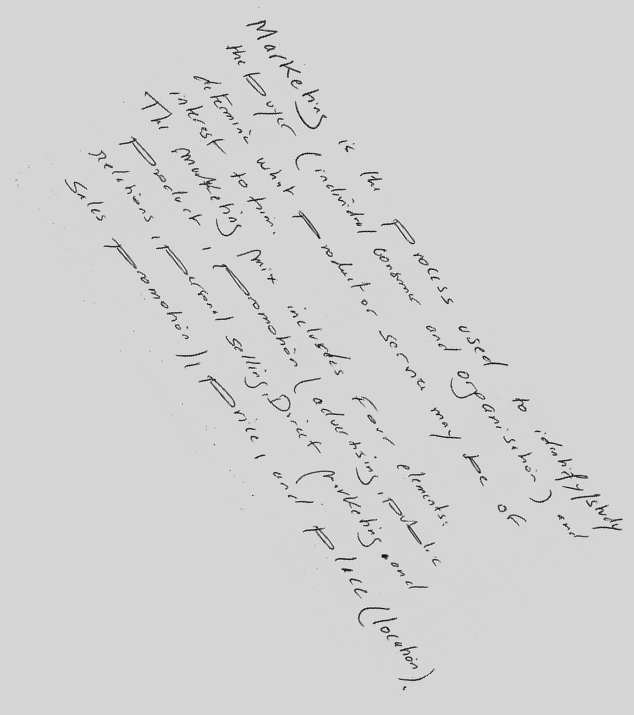 Marketing is the Process used to identify/study
the buyer (individual consumer and organisation) and
determine what Product or service may be of
interest to him.
The marketing mix includes four elements:
Product, Promotion (advertising, public
relations, Personal selling, Direct marketing and
sales promotion), Price, and Place (location).